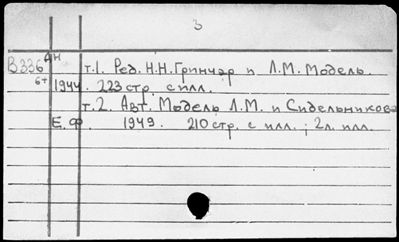 3
В336 дн т.1. Ред. Н.Н. Гринчар и Л.М. Модель.
6+ 1944. 223 стр. с илл.
т.2. Авт. Модель Л.М. и Сидельникова
Е.Ф. 1949. 210 стр. с илл.; 2 л. илл.